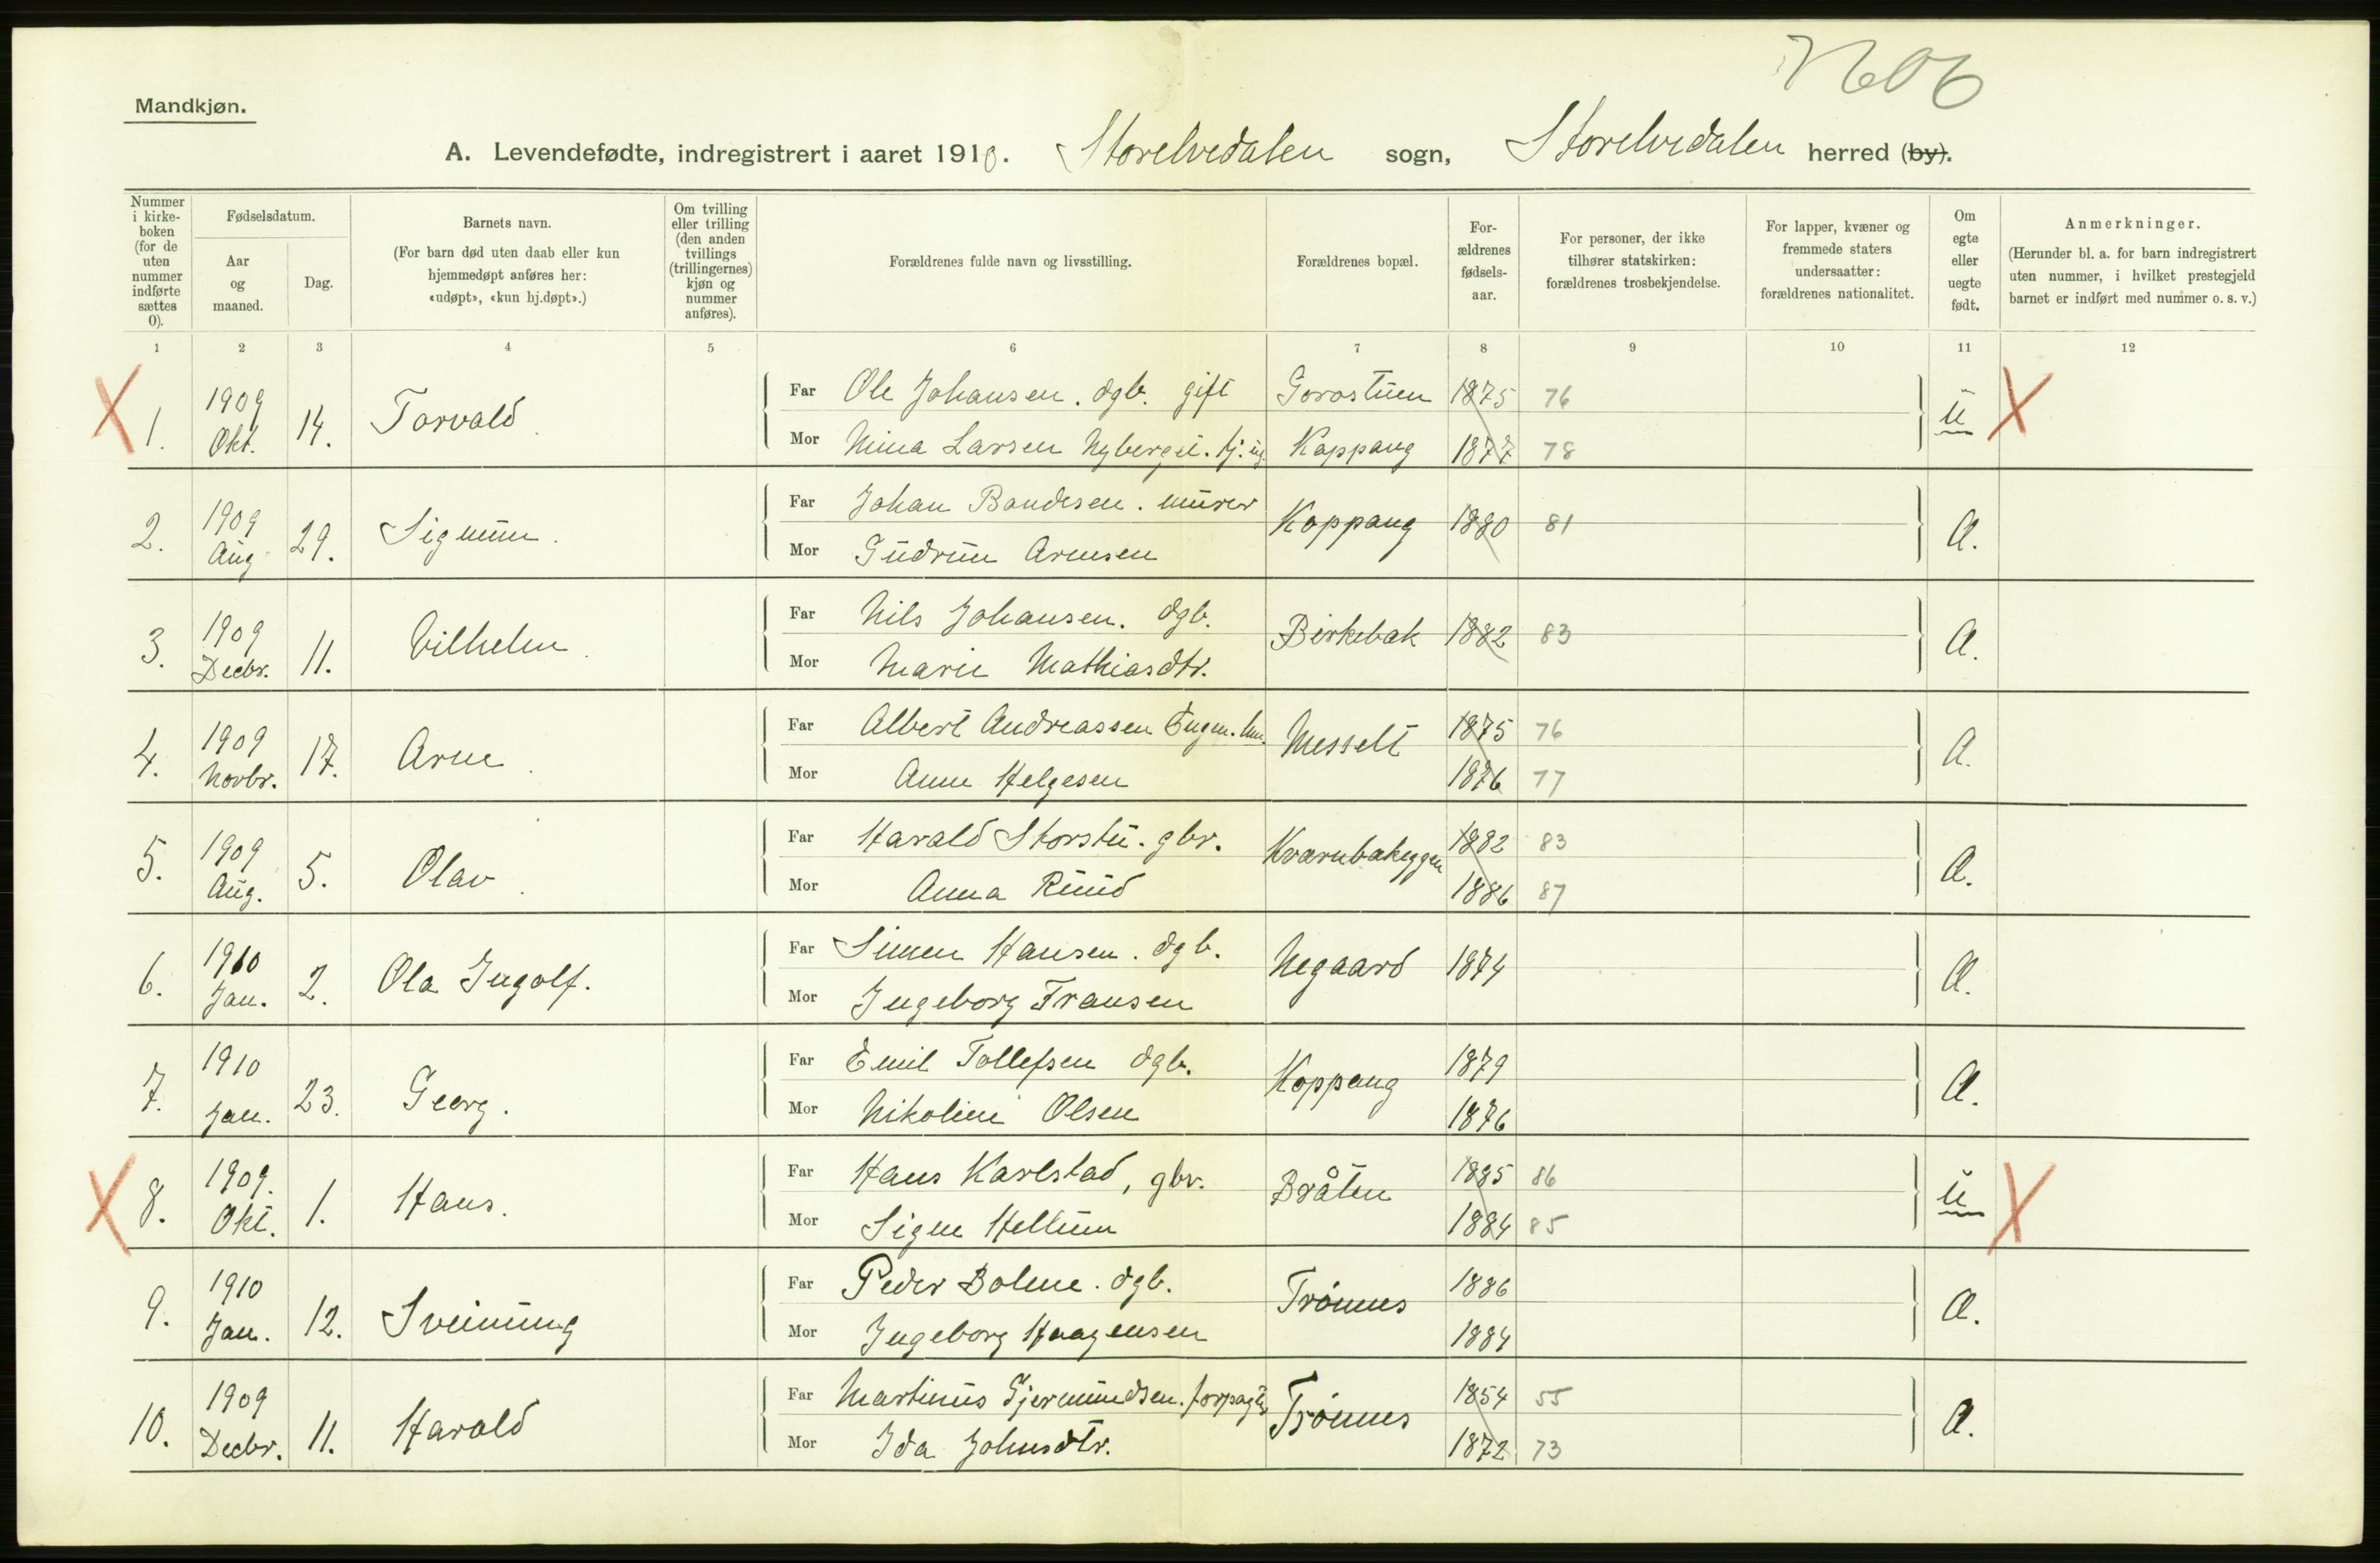 Mandkjøn.
A. Levendefødte, indregistrert i aaret 1910. Storelvedalen sogn, Storelvedalen herred (by).
Nummer i kirke-boken (for de uten nummer indførte sættes 0).
Fødselsdatum.
Aar og maaned.
Dag.
Barnets navn.
(For barn død uten daab eller kun hjemmedøpt anføres her: «udøpt», «kun hj.døpt».)
Om tvilling eller trilling (den anden tvillings (trillingernes) kjøn og nummer anføres).
Forældrenes fulde navn og livsstilling.
Forældrenes bopæl.
For-ældrenes fødsels-aar.
For personer, der ikke tilhører statskirken: forældrenes trosbekjendelse.
For lapper, kvæner og fremmede staters undersaatter: forældrenes nationalitet.
Om egte eller uegte født.
Anmerkninger.
(Herunder bl. a. for barn indregistrert uten nummer, i hvilket prestegjeld barnet er indført med nummer o. s. v.)
1 2 3 4 5 6 7 8 9 10 11 12
X 1. 1909 Okt. 14. Torvald. Far Ole Johansen. dgb. gift Gorostuen 1875 76 u X
Mor Nina Larsen Koppang 1877 78
2. 1909 Aug 29. Sigmun. Far Johan Baudesen. murer Koppang 1880 81 A.
Mor Gudrun Arnesen
3. 1909 Decbr. 11. Vilhelm. Far Nils Johansen. dgb. Birkebak 1882 83 A.
Mor Marie Mathiasdtr.
4. 1909 Novbr. 17. Arne. Far Albert Andreassen Messelt 1875 76 A.
Mor Anne Helgesen 1876 77
5. 1909 Aug. 5. Olav. Far Harald Storstu. gbr. Kværnbakeggen 1882 83 A.
Mor Anna Ruud 1886 87
6. 1910 Jan. 2. Ola Ingolf. Far Simen Hansen. dgb. Negaard 1874 A.
Mor Ingeborg Fransen
7. 1910 Jan. 23. Georg. Far Emil Tollefsen dgb. Koppang 1879 A.
Mor Nikoline Olsen 1876
X 8. 1909. Okt. 1. Hans. Far Hans Karlstad, gbr. Bråten 1885 86 u X
Mor Signe Hellum 1884 85
9. 1910 Jan. 12. Sveinung Far Peder Bolme. dgb. Trønnes 1886 A.
Mor Ingeborg Haagensen 1884
10. 1909 Decbr. 11. Harald Far Martinus Gjermundsen. forpagter Trønnes 1854 55 A.
Mor Ida Johnsdtr. 1872 73